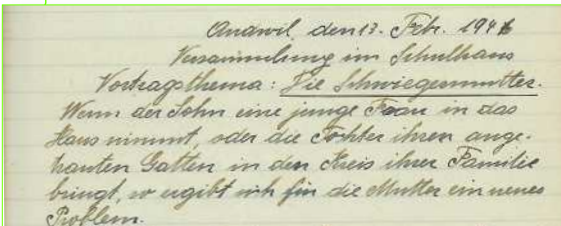 Andwil, den 13. Febr. 1946
Versammlung im Schulhaus
Vortragsthema: Die Schwiegermutter.
Wenn der Sohn eine junge Frau in das
Haus nimmt, oder die Tochter ihren ange-
trauten Gatten in den Kreis ihrer Familie
bringt, so ergibt sich für die Mutter ein neues
Problem.